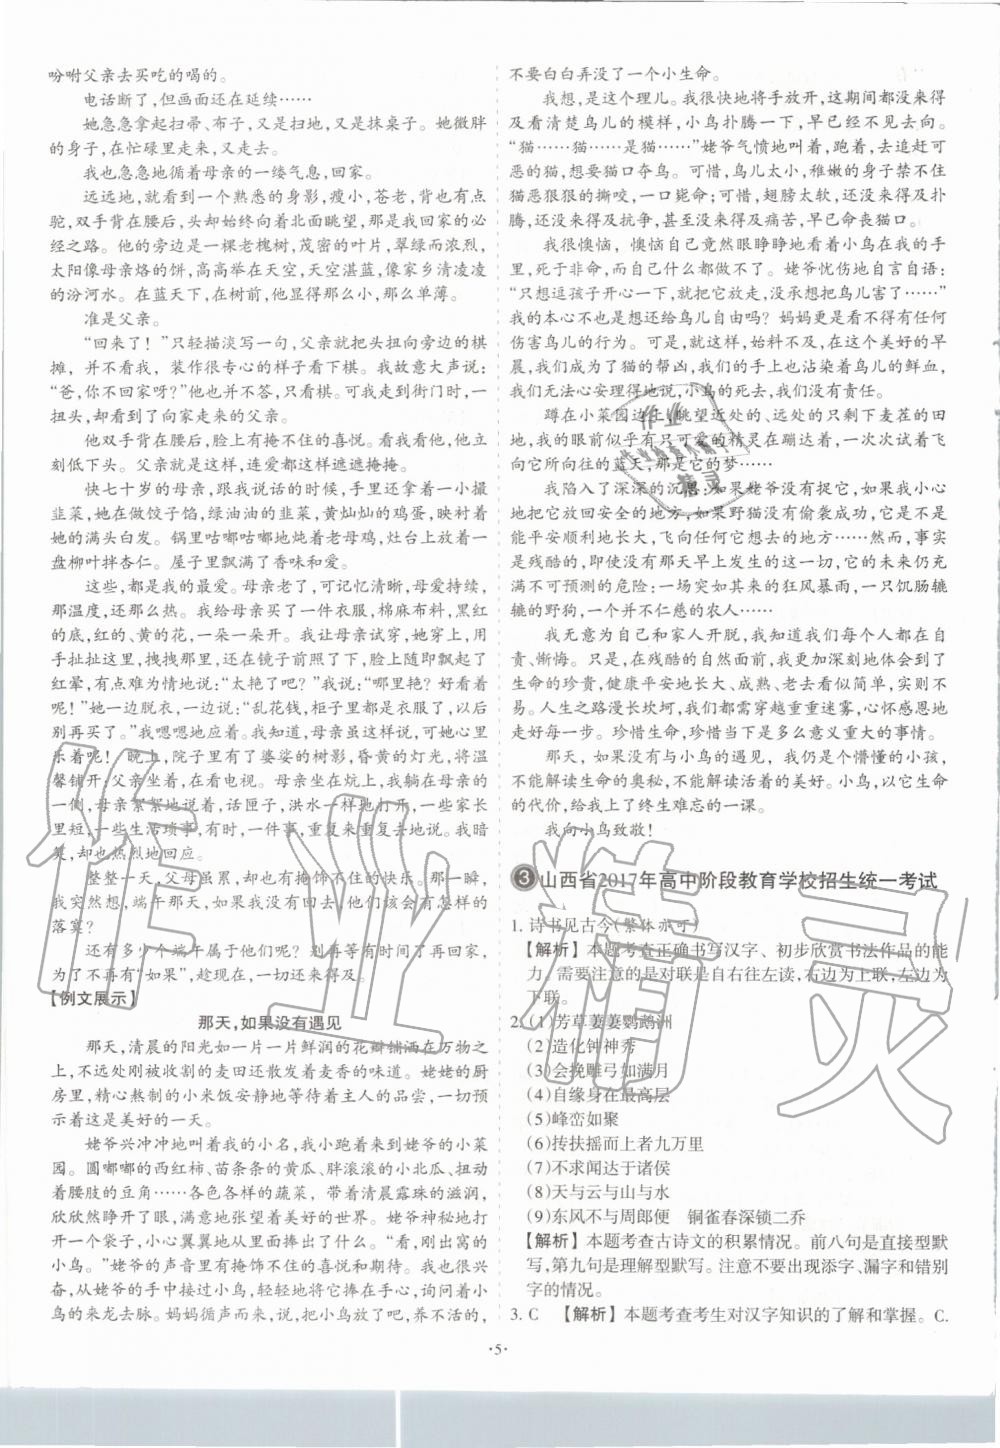 吩咐父亲去买吃的喝的。
电话断了，但画面还在延续……
她急急拿起扫帚、布子，又是扫地，又是抹桌子。她微胖
的身影，在忙碌里走来，又走去。
我也急急地循着母亲的一缕气息，回家。
远远地，就看到一个熟悉的身影，瘦小，苍老，背也有点
驼，双手背在腰后，头却始终向着北面眺望，那是我回家的必
经之路。他的旁边是一棵老槐树，茂密的叶片，翠绿而浓烈，
太阳像母亲烙的饼，高高举在天空，天空湛蓝，像家乡清凌凌
的汾河水。在蓝天下，在树前，他显得那么小，那么单薄。
准是父亲。
“回来了！”只轻描淡写一句，父亲就把头扭向旁边的棋
摊，并不看我，装作很专心的样子看下棋。我故意大声说：
“爸，你不回家呀？”他也并不答，只看棋。我走到街门时，一
扭头，却看到了向家走来的父亲。
他双手背在腰后，脸上有掩不住的喜悦。看我看他，他立
刻低下头。父亲就是这样，连爱都这样遮遮掩掩。
快七十岁的母亲，跟我说话的时候，手里还择着一小撮
韭菜，在做饺子馅，绿油油的韭菜，黄灿灿的鸡蛋，映衬着
她的满头白发。锅里咕嘟咕嘟地炖着老母鸡，灶台上有一
盘柳叶拌杏仁。屋子里飘满了香味和爱。
这些，都是我的最爱。母亲老了，可记忆清晰，母爱烫烫，
那温度，还那么热。我给母亲买了一件衣服，棉麻布料，黑红
的底，红的、黄的花，一朵一朵开。我让母亲试穿，她穿上，用
手扯扯这里，拽拽那里，还在镜子前照了下，脸上随即飘起了
红晕，有点难为情地说：“太艳了吧？”我说：“哪里艳？好看着
呢！”她一边脱衣，一边说：“乱花钱，柜子里都是衣服了，以后
别再买了。”我嗯嗯地应着。我知道，母亲虽这样说，可她心里
乐着呢！晚上，院子里有了婆娑的树影，昏黄的灯光，将温
馨铺开；父亲坐着，在看电视。母亲半坐在炕上，我躺在母亲
的一侧，母亲絮絮地说着，话匣子，洪水一样地打开，一些家长
里短，一些生活琐事，有时，一件事，重复来重复去地说。我暗
笑，却也热烈地回应。
整整一天，父母都沉浸在有我陪伴的快乐。那么，没有我
陪伴的端午呢？端午之外呢？他们该有怎样的孤单，怎样的
落寞？
还有多少个端午属于他们呢？别看等我有时间再回去，
为了不再有“如果”，趁现在，一切还来得及。
【例文展示】
那天，如果没有遇见
那天，清晨的阳光如一片一片鲜润的花瓣铺洒在万物之
上，不远处刚被收割的麦田还散发着麦香的味道。姥姥的厨
房里，精心熬制的小米饭安静地等待着主人的品尝，一切预
示着这是美好的一天。
姥爷兴冲冲地叫着我的小名，我小跑着来到姥爷的小菜
园。圆嘟嘟的西红柿、苗条条的黄瓜、胖滚滚的小北瓜、扭动
着腰肢的豆角……各色各样的蔬菜，带着清晨露珠的滋润，
欣欣然睁开了眼，满意地张望着美好的世界。姥爷神秘地蹲
在一个角落，小心翼翼地从里面捧出了什么。“看，刚出窝的
小鸟。”姥爷的声音里有掩饰不住的喜悦和期待。我也很兴
奋，从姥爷的手中接过小鸟，轻轻地将它捧在手心，询问着小
鸟的来龙去脉。妈妈闻声赶来，说，把小鸟放了吧，养不活的，
不要白白弄没了一个小生命。
我想，是这个理儿。我很快地将手放开，这期间都没来得
及看清楚鸟儿的模样，小鸟扑腾一下，早已经不见了踪影。
“猫……猫……是猫……”姥爷气愤地叫着，跑着，去追赶可
恶的黑猫，想从猫口夺鸟。可惜，鸟儿太小，稚嫩的身子禁不住
恶狠狠的撕咬，一口毙命；可惜，翅膀太软，还没来得及伸展
开；还没来得及抗争，甚至没来得及痛苦，早已丧命猫口。
我很懊恼，懊恼自己竟然眼睁睁地看着小鸟在我的手
里，死于非命，而我自己什么都没有做。姥爷忧伤地自言自语：
“只想逗孩子开心一下，就把它放走，没承想把鸟儿害了……”
我的本心不也是想还给鸟儿自由吗？妈妈更不曾有任何
伤害鸟儿的行为。可是，就这样，始料不及，在这个美好的早
晨，我们成为了猫的帮凶，我们的手上也沾染着鸟儿的鲜血，
我们无法心安理得地说，小鸟的死去，我们没有责任。
蹲在小菜园边上，眺望近处的、远处的只剩下麦茬的田
地，我的眼前似乎有只可爱的精灵在蹦达着，一会儿又飞向
它所向往的蓝天，那是它的梦……
我陷入了深深的沉思：如果姥爷没有捉它，如果我小心
地把它放回安全的地方，如果野猫没有偷袭成功，它是否就
能平安顺利地长大，飞向任何它想去的地方……然而，事实
是残酷的，即使没有那天早上发生的一切，它的未来仍充满
不可预测的危险：一场突如其来的狂风暴雨，一只饥肠辘
辘的野狗，一个并不仁慈的农人……
我无意为自己和家人开脱，我知道我们每个人都在自
责、惭悔。只是，在残酷的自然面前，我更加深刻地体会到了
生命的珍贵，健康平安地长大、成熟、老去看似简单，实则不
易。人生之路漫长坎坷，我们都需穿越重重迷雾，心怀感恩地
走好每一步。珍惜生命，珍惜当下是多么意义重大的事情。
那天，如果没有与小鸟的遇见，我仍是个懵懂的小孩，
不能解读生命的奥秘，不能解读活着的美好。小鸟，以它生命
的代价，给我上了终生难忘的一课。
我向小鸟致敬！
3 山西省2017年高中阶段教育学校招生统一考试
1. 诗书见古今（繁体亦可）
【解析】本题考查正确书写汉字、初步欣赏书法作品的能
力。需要注意的是对联是自右往左读，右边为上联，左边为
下联。
2. （1）芳草萋萋鹦鹉洲
（2）造化钟神秀
（3）会挽雕弓如满月
（4）自缘身在最高层
（5）峰峦如聚
（6）抟扶摇而上者九万里
（7）不求闻达于诸侯
（8）天与云与山与水
（9）东风不与周郎便 铜雀春深锁二乔
【解析】本题考查古诗文的积累情况。前八句是直接型默
写，第九句是理解型默写。注意不要出现添字、漏字和错别
字的情况。
3. C 【解析】本题考查考生对汉字知识的了解和掌握。C.
·5·
作业精灵
作业
精灵